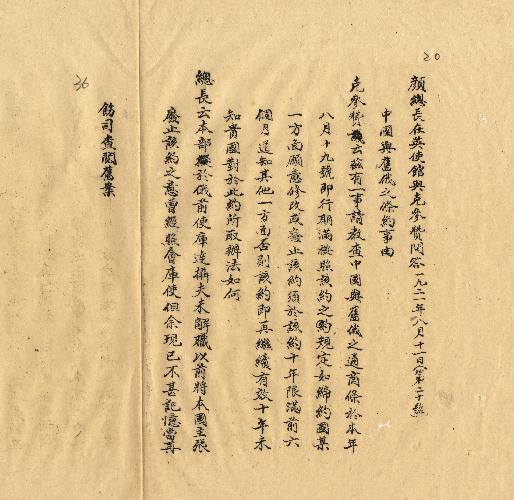 20
顏總長在英使館與克參贊問答 一九二一年八月十一日
中國與舊俄之條約事由
克參贊云茲有一事請教查中國與舊俄之通商條於本年
八月十九號即行期滿按照該約之約規定如締約國某
一方面願意修改或廢止該約須於該約十年限滿前六
個月通知其他一方面否則該約即再繼續有效十年未
知貴國對於此約所取辦法如何
總長云本部於俄前使庫達攝夫未解職以前將本國主張
廢止該約之意曾經照會庫使但余現已不甚記憶當再
飭司查閱舊案
36